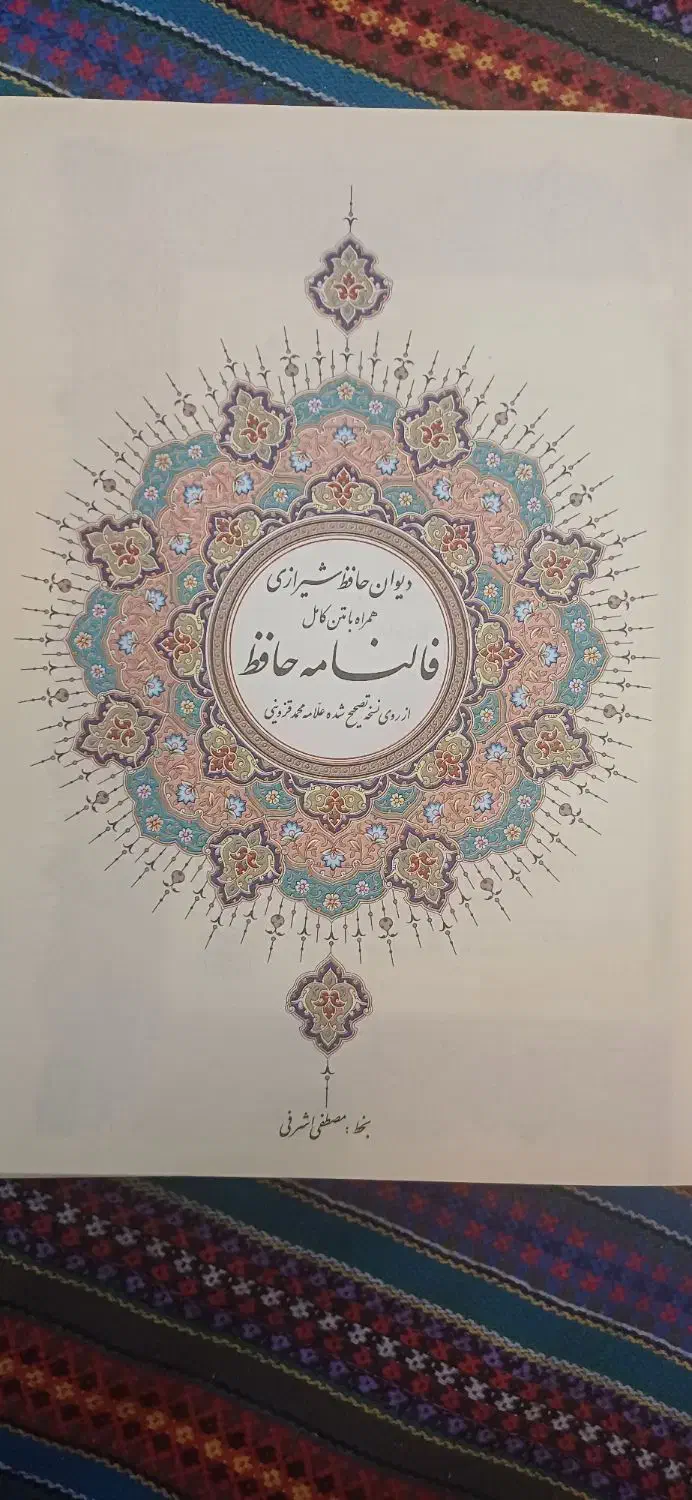 دیوان حافظ شیرازی
همراه با متن کامل
فالنامه حافظ
از روی نسخه تصحیح شده علامه محمد قزوینی
بخط: مصطفی اشرفی